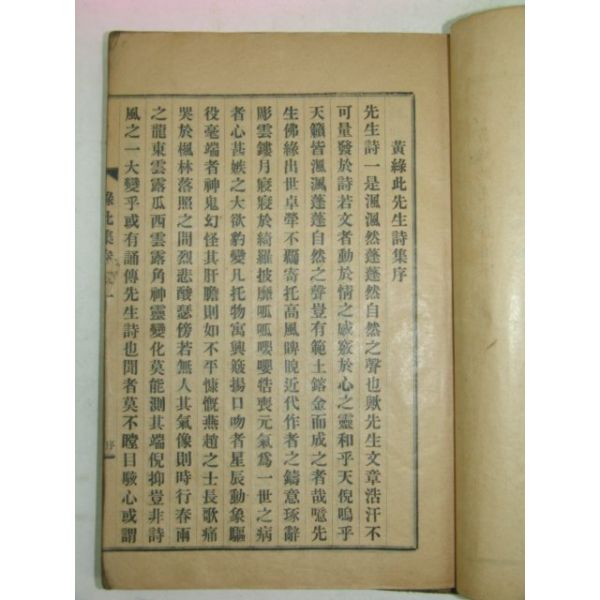 黃綠此先生詩集序
先生詩一是渢渢然蓬蓬然自然之聲也歟先生文章浩汗不
可量發於詩若文者動於情之感竅於心之靈和乎天倪嗚乎
天籟皆渢渢蓬蓬自然之聲豈有範土鎔金而成之者哉噫先
生佛綠出世卓犖不羈寄托高風睥睨近代作者之鑄意琢辭
彫雲鏤月寢寢於綺羅披靡呱呱嚶嚶牿喪元氣爲一世之病
者心甚嫉之大欲豹變凡托物寓興簸揚口吻者星辰動象驅
役毫端者神鬼幻怪其肝膽則如不平慷慨燕趙之士長歌痛
哭於楓林落照之間烈悲酸瑟傍若無人其氣像則時行春雨
之龍東雲露瓜西雲露角神靈變化莫能測其端倪抑豈非詩
風之一大變乎或有誦傳先生詩也聞者莫不瞠目駭心或謂
綠此集 卷一
序